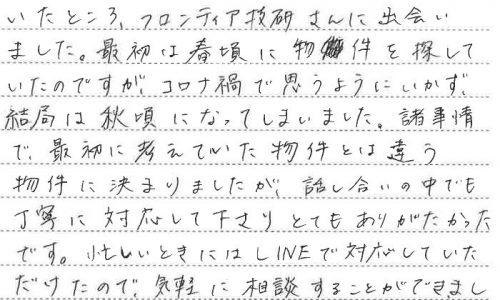 いたところ、フロンティア技研さんに出会い
ました。最初は春頃に物件を探して
いたのですが、コロナ禍で思うようにいかず、
結局は秋頃になってしまいました。諸事情
で、最初に考えていた物件とは違う
物件に決まりましたが、話し合いの中でも
丁寧に対応して下さりとてもありがたかった
です。忙しいときにはLINEで対応していた
だけたので、気軽に相談することができまし